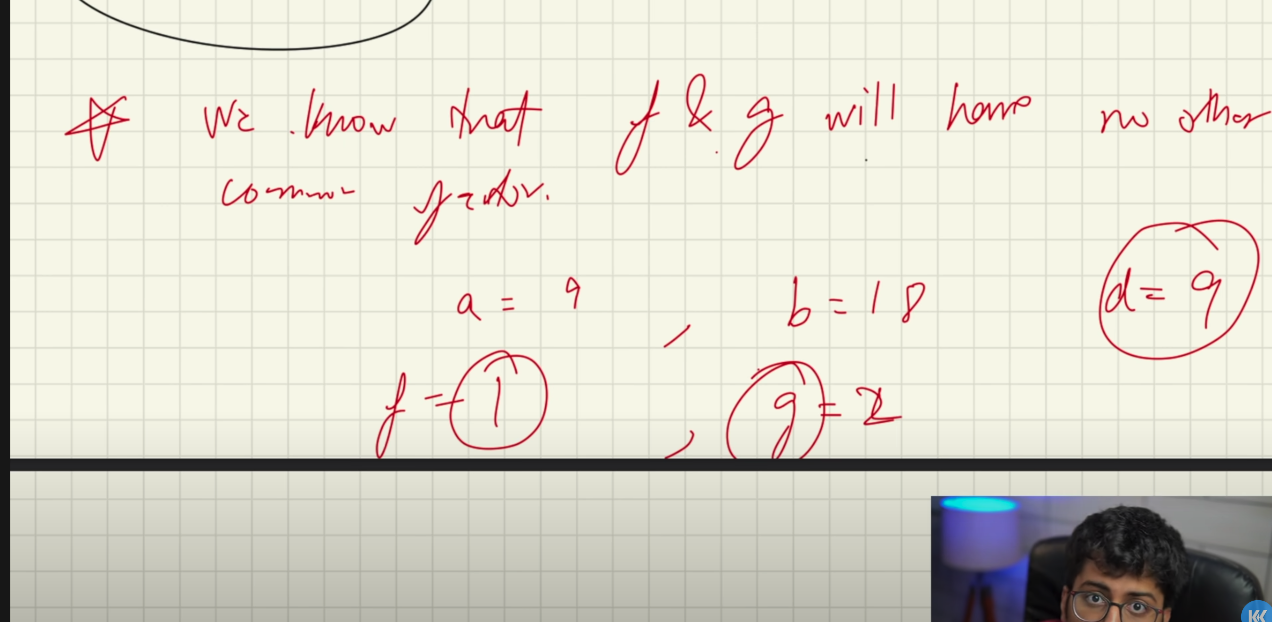 We know that f & g will have no other
common factor.
a = 9 , b = 18 d = 9
f = 1 , g = 2